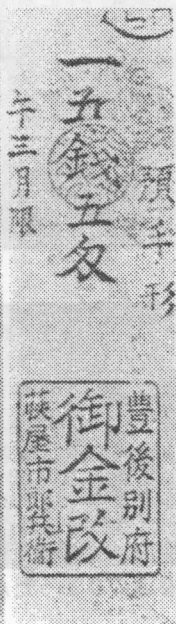 預手形
一五錢五匁
午三月限
豐後別府
御金改
萩屋市郎兵衛